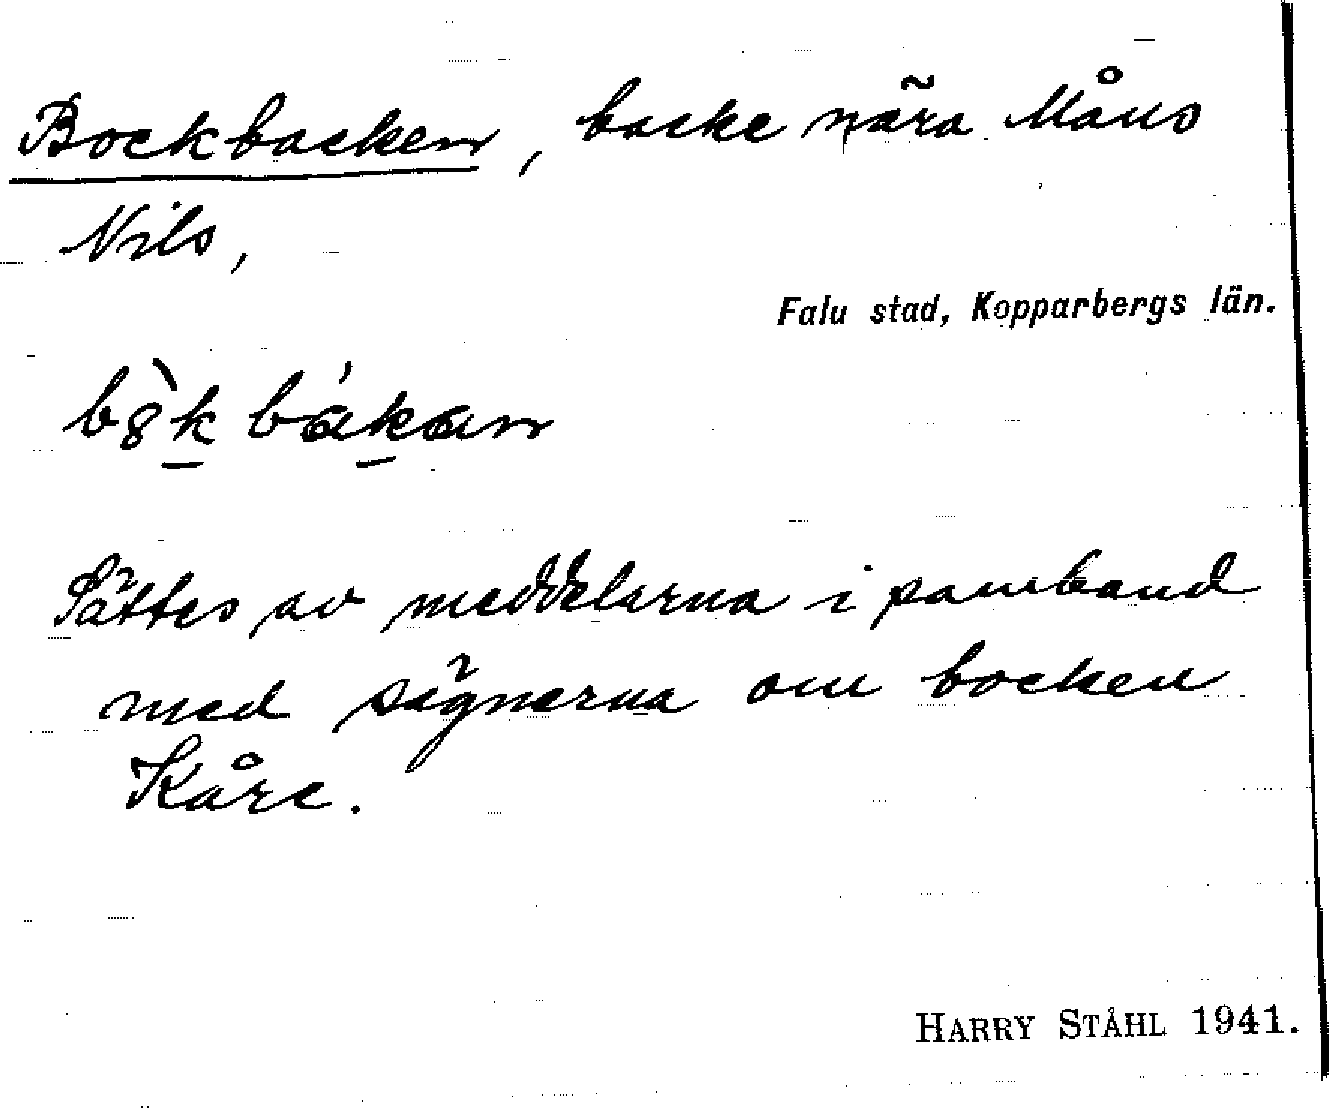 Bockbacken, backe nära Måns
Nils,
Falu stad, Kopparbergs län.
bȣ̀k bákan
Sättes av meddelarna i samband
med sägnerna om bocken
Kåre.
HARRY STÅHL 1941.